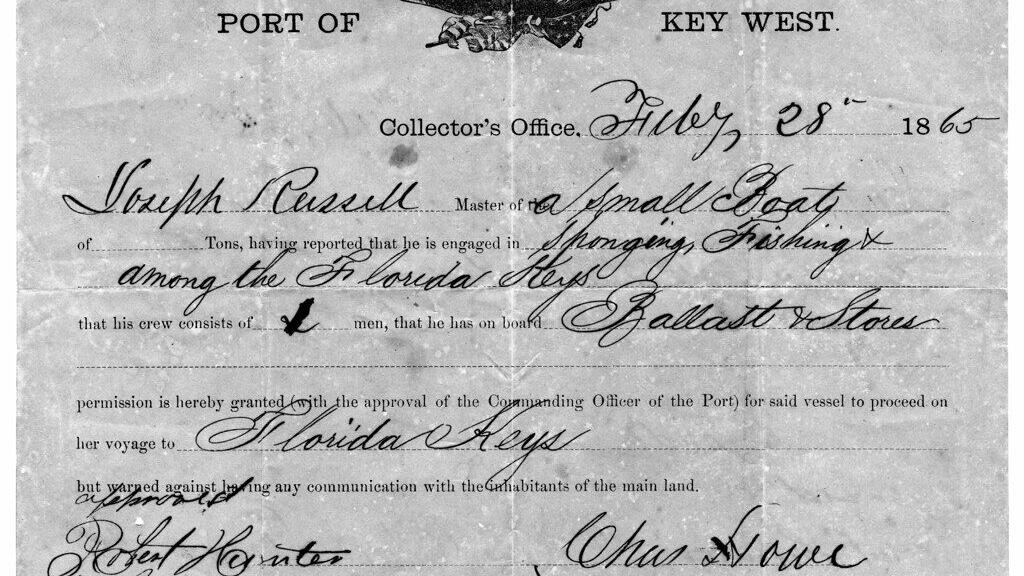 PORT OF KEY WEST.
Collector's Office, Feby, 28" 1865
Joseph Russell Master of the a small Boat,
of Tons, having reported that he is engaged in Sponging, Fishing &
among the Florida Keys
that his crew consists of men, that he has on board Ballast & Stores
permission is hereby granted (with the approval of the Commanding Officer of the Port) for said vessel to proceed on
her voyage to Florida Keys
but warned against having any communication with the inhabitants of the main land.
approved
Robert Hunter Chas Howe